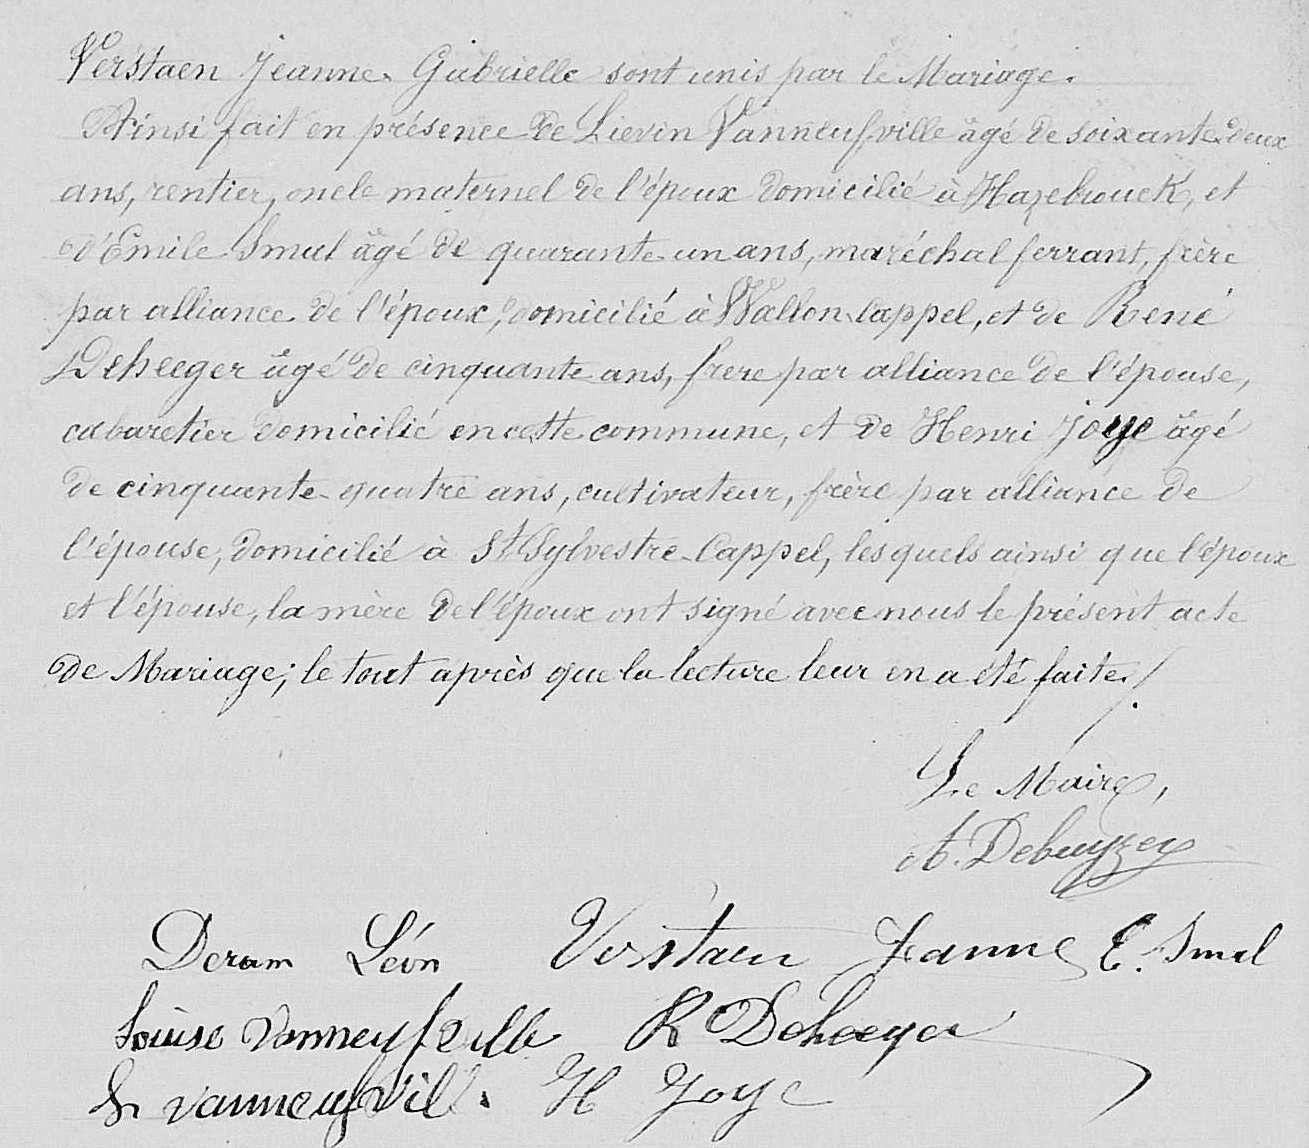 Verstaen Jeanne Gabrielle sont unis par le Mariage.
Ainsi fait en présence de Lievin Vanneufville âgé de soixante-deux
ans, rentier, oncle maternel de l'époux domicilié à Hazebrouck, et
d'Emile Smal âgé de quarante-un ans, maréchal ferrant, frère
par alliance de l'époux, domicilié à Wallon-Cappel, et de René
Deheeger âgé de cinquante ans, frere par alliance de l'épouse,
cabaretier domicilié en cette commune, et de Henri Joye âgé
de cinquante-quatre ans, cultivateur, frère par alliance de
l'épouse, domicilié à St Sylvestre-Cappel, lesquels ainsi que l'époux
et l'épouse, la mère de l'époux ont signé avec nous le présent acte
de Mariage; le tout après que la lecture leur en a été faite./.
Le Maire,
A. Debuyzer
Deram Léon Verstaen Jeanne E. Smal
Louise Vanneufville R Deheeger
L vanneufvill. H Joye